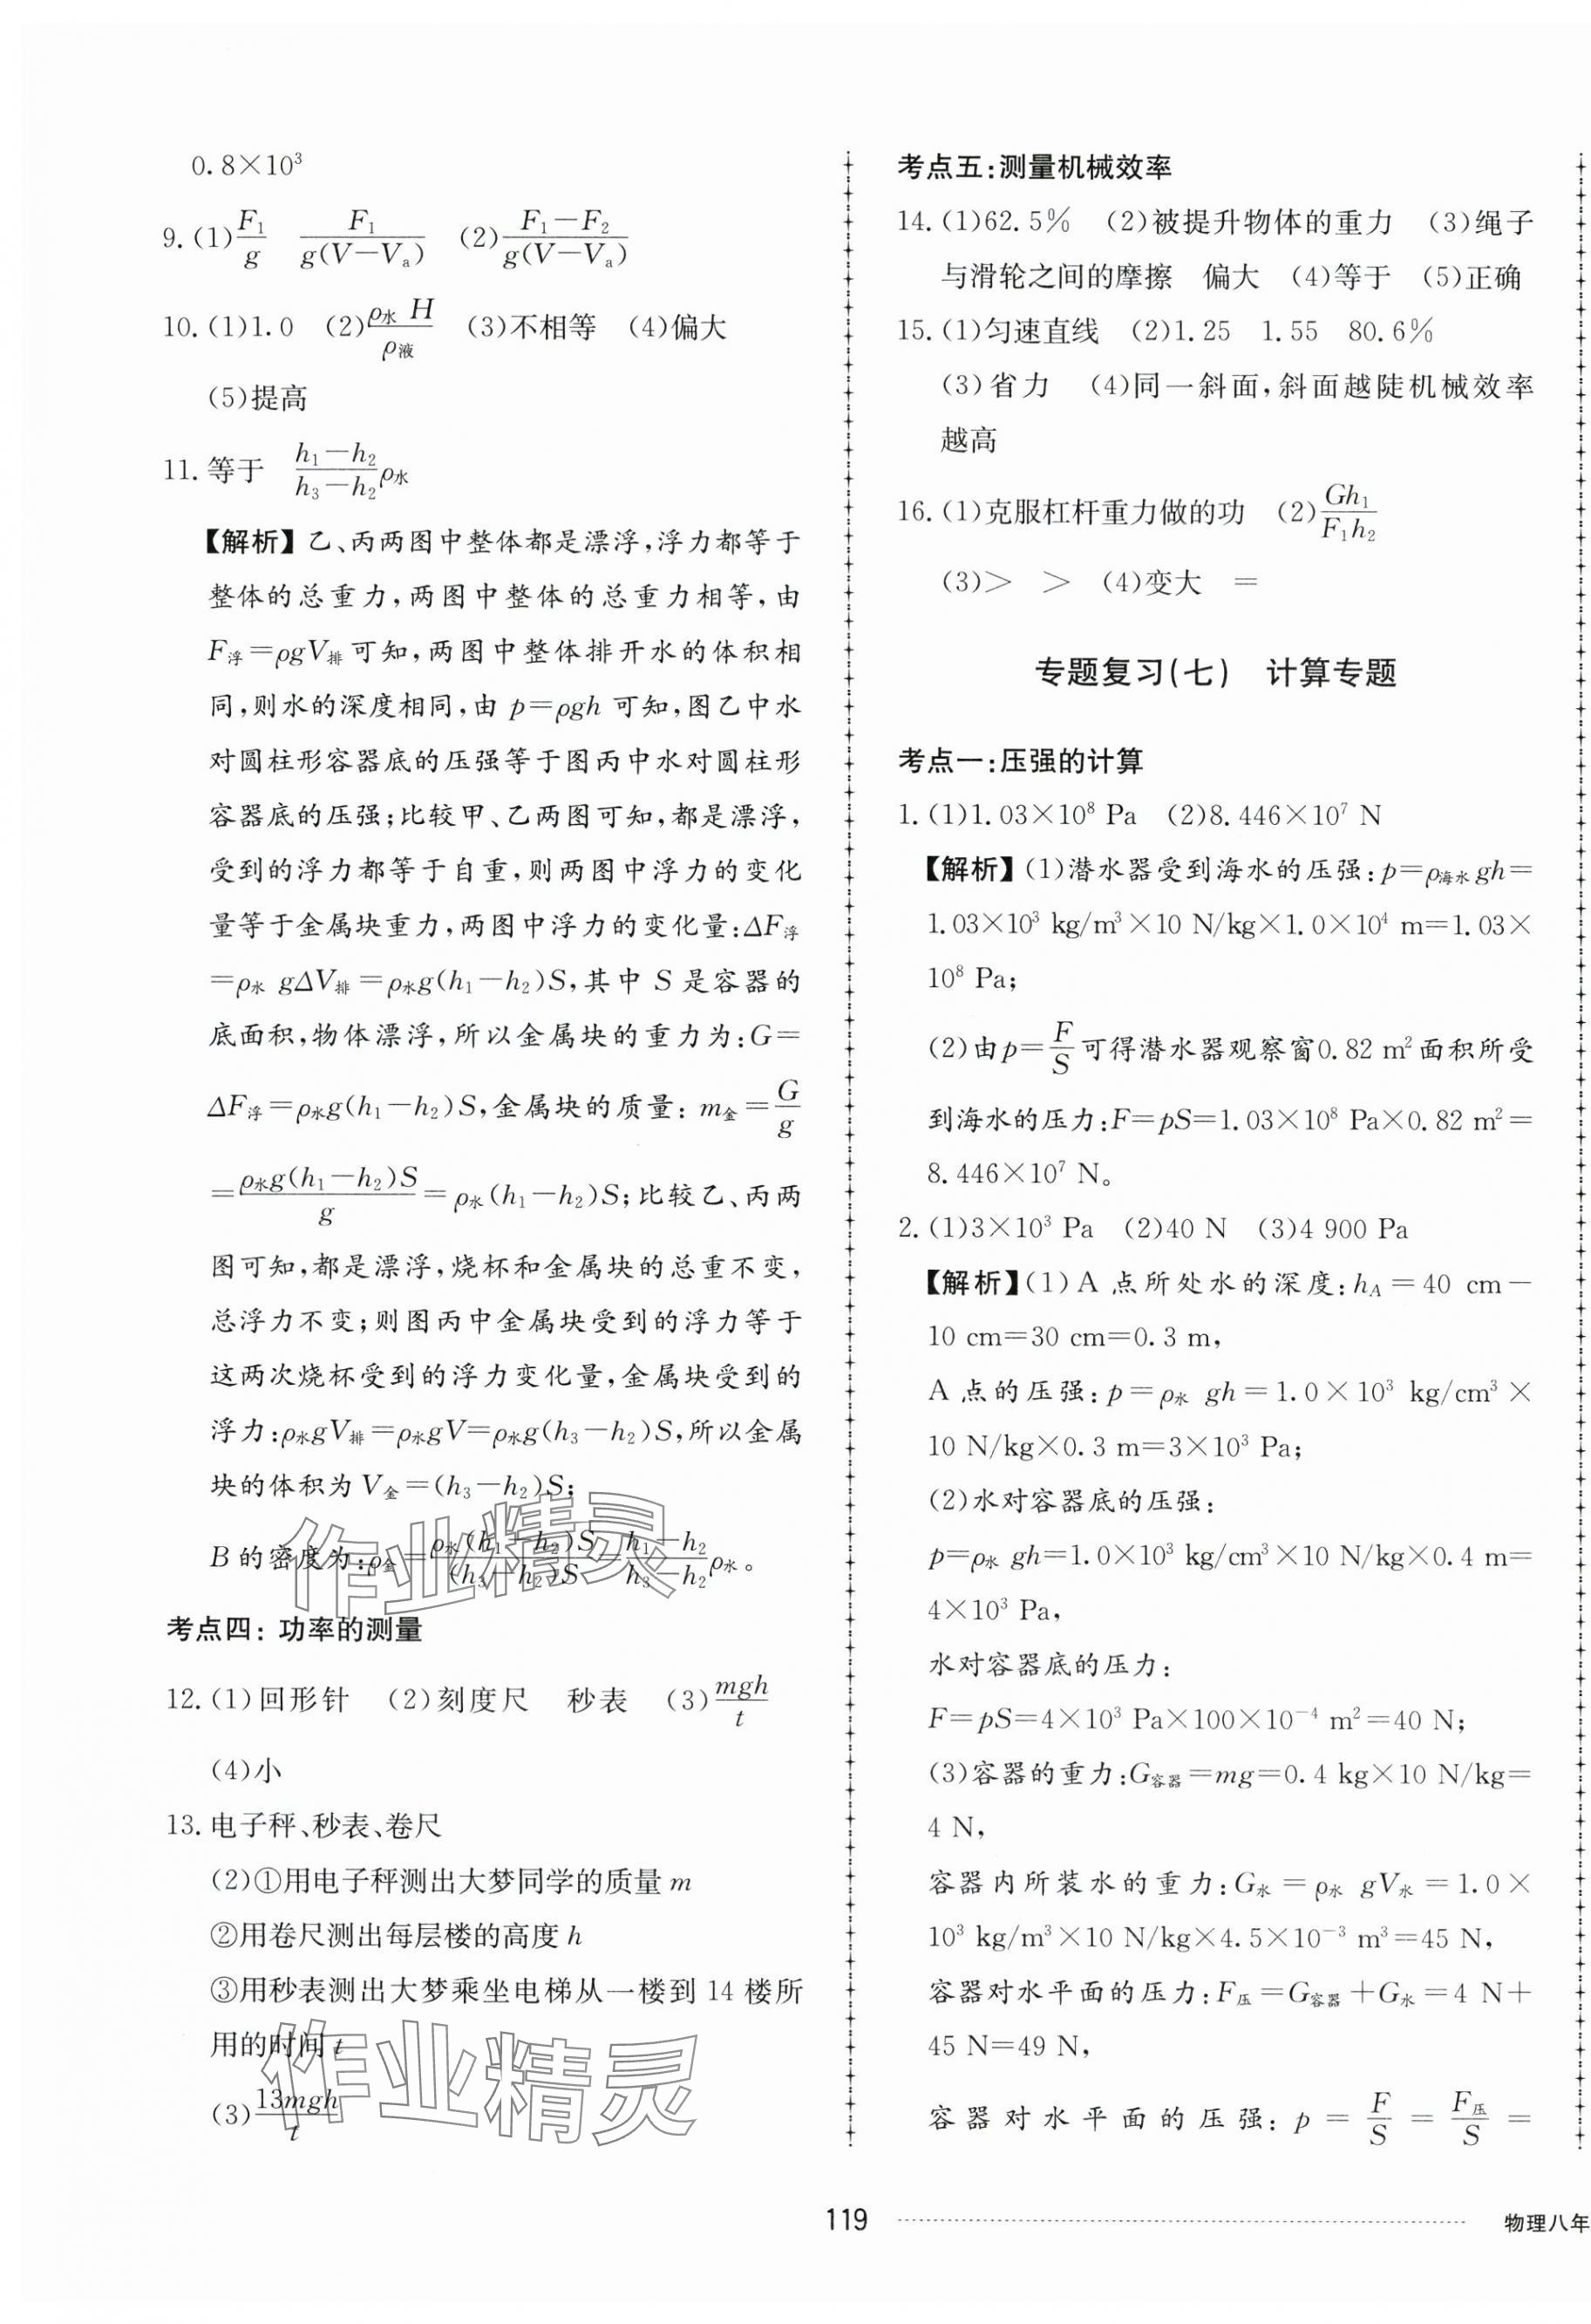 0.8×10³
9.(1)F₁/g  F₁/g(V−Vₐ)  (2)(F₁−F₂)/g(V−Vₐ)
10.(1)1.0  (2)ρ水 H/ρ液  (3)不相等  (4)偏大
(5)提高
11.等于  (h₁−h₂)/(h₃−h₂)ρ水
【解析】乙、丙两图中整体都是漂浮,浮力都等于
整体的总重力,两图中整体的总重力相等,由
F浮=ρgV排可知,两图中整体排开水的体积相
同,则水的深度相同,由 p=ρgh 可知,图乙中水
对圆柱形容器底的压强等于图丙中水对圆柱形
容器底的压强;比较甲、乙两图可知,都是漂浮,
受到的浮力都等于自重,则两图中浮力的变化
量等于金属块重力,两图中浮力的变化量:ΔF浮
=ρ水 gΔV排=ρ水g(h₁−h₂)S,其中 S 是容器的
底面积,物体漂浮,所以金属块的重力为:G=
ΔF浮=ρ水g(h₁−h₂)S,金属块的质量: m金=G/g
=ρ水g(h₁−h₂)S/g=ρ水(h₁−h₂)S;比较乙、丙两
图可知,都是漂浮,烧杯和金属块的总重不变,
总浮力不变;则图丙中金属块受到的浮力等于
这两次烧杯受到的浮力变化量,金属块受到的
浮力:ρ水gV排=ρ水gV=ρ水g(h₃−h₂)S,所以金属
块的体积为 V金=(h₃−h₂)S;
B 的密度为:ρ金=ρ水(h₁−h₂)S/(h₃−h₂)S=(h₁−h₂)/(h₃−h₂)ρ水。
考点四: 功率的测量
12.(1)回形针  (2)刻度尺  秒表  (3)mgh/t
(4)小
13.电子秤、秒表、卷尺
(2)①用电子秤测出大梦同学的质量 m
②用卷尺测出每层楼的高度 h
③用秒表测出大梦乘坐电梯从一楼到 14 楼所
用的时间 t
(3)13mgh/t
作业精灵
作业精灵
考点五:测量机械效率
14.(1)62.5%  (2)被提升物体的重力  (3)绳子
与滑轮之间的摩擦  偏大  (4)等于  (5)正确
15.(1)匀速直线  (2)1.25  1.55  80.6%
(3)省力  (4)同一斜面,斜面越陡机械效率
越高
16.(1)克服杠杆重力做的功  (2)Gh₁/F₁h₂
(3)>  >  (4)变大  =
专题复习(七)  计算专题
考点一:压强的计算
1.(1)1.03×10⁸ Pa  (2)8.446×10⁷ N
【解析】(1)潜水器受到海水的压强:p=ρ海水gh=
1.03×10³ kg/m³×10 N/kg×1.0×10⁴ m=1.03×
10⁸ Pa;
(2)由p=F/S可得潜水器观察窗0.82 m²面积所受
到海水的压力:F=pS=1.03×10⁸ Pa×0.82 m²=
8.446×10⁷ N。
2.(1)3×10³ Pa  (2)40 N  (3)4 900 Pa
【解析】(1)A 点所处水的深度:hA=40 cm−
10 cm=30 cm=0.3 m,
A 点的压强:p=ρ水 gh=1.0×10³ kg/cm³×
10 N/kg×0.3 m=3×10³ Pa;
(2)水对容器底的压强:
p=ρ水 gh=1.0×10³ kg/cm³×10 N/kg×0.4 m=
4×10³ Pa,
水对容器底的压力:
F=pS=4×10³ Pa×100×10⁻⁴ m²=40 N;
(3)容器的重力:G容器=mg=0.4 kg×10 N/kg=
4 N,
容器内所装水的重力:G水=ρ水 gV水=1.0×
10³ kg/m³×10 N/kg×4.5×10⁻³ m³=45 N,
容器对水平面的压力:F压=G容器+G水=4 N+
45 N=49 N,
容器对水平面的压强: p=F/S=F压/S=
119
物理八年